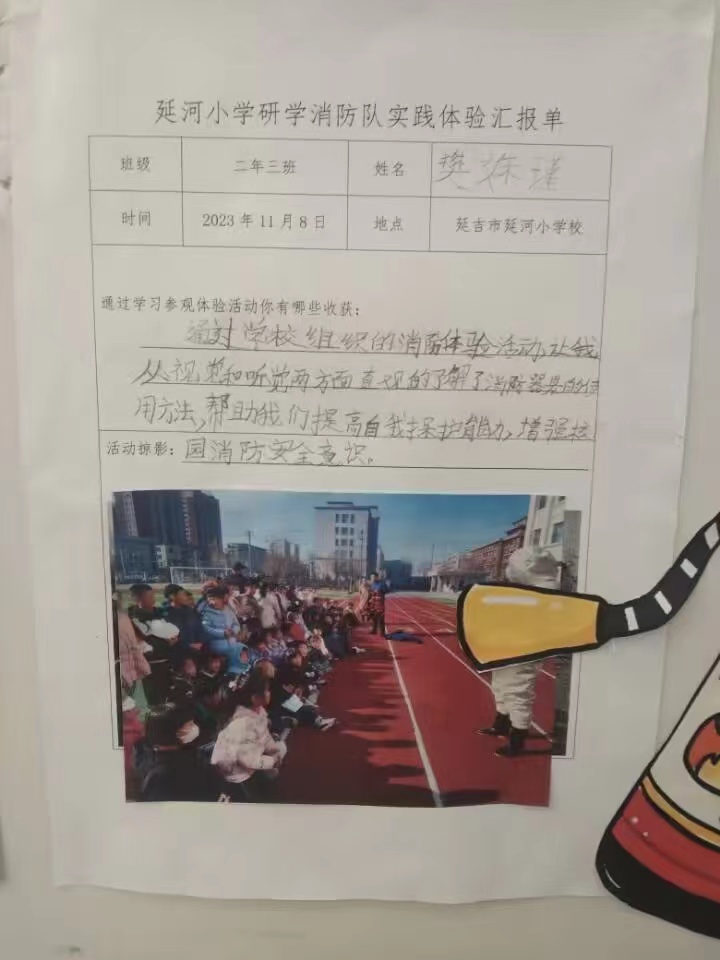 延河小学研学消防队实践体验汇报单
班级 二年三班 姓名 樊
时间 2023年11月8日 地点 延吉市延河小学校
通过学习参观体验活动你有哪些收获：
通过学校组织的消防体验活动,让我
从视觉和听觉两方面直观的了解了消防器具的使
用方法,帮助我们提高自我保护能力,增强校
活动掠影：园消防安全意识。